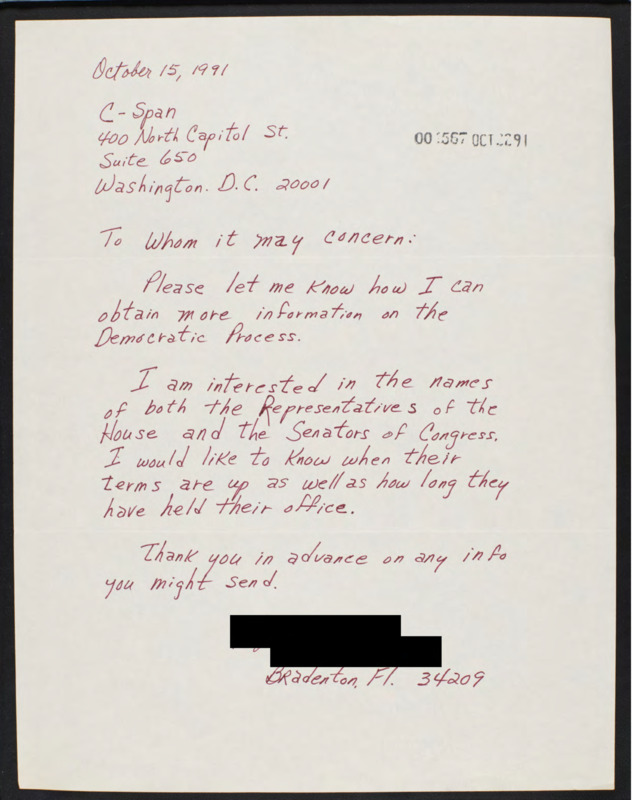 October 15, 1991
C-Span
400 North Capitol St.
Suite 650
Washington. D.C. 20001
OCT 91
To Whom it may concern:
Please let me know how I can
obtain more information on the
Democratic Process.
I am interested in the names
of both the Representatives of the
House and the Senators of Congress.
I would like to know when their
terms are up as well as how long they
have held their office.
Thank you in advance on any info
you might send.
Bradenton, Fl. 34209